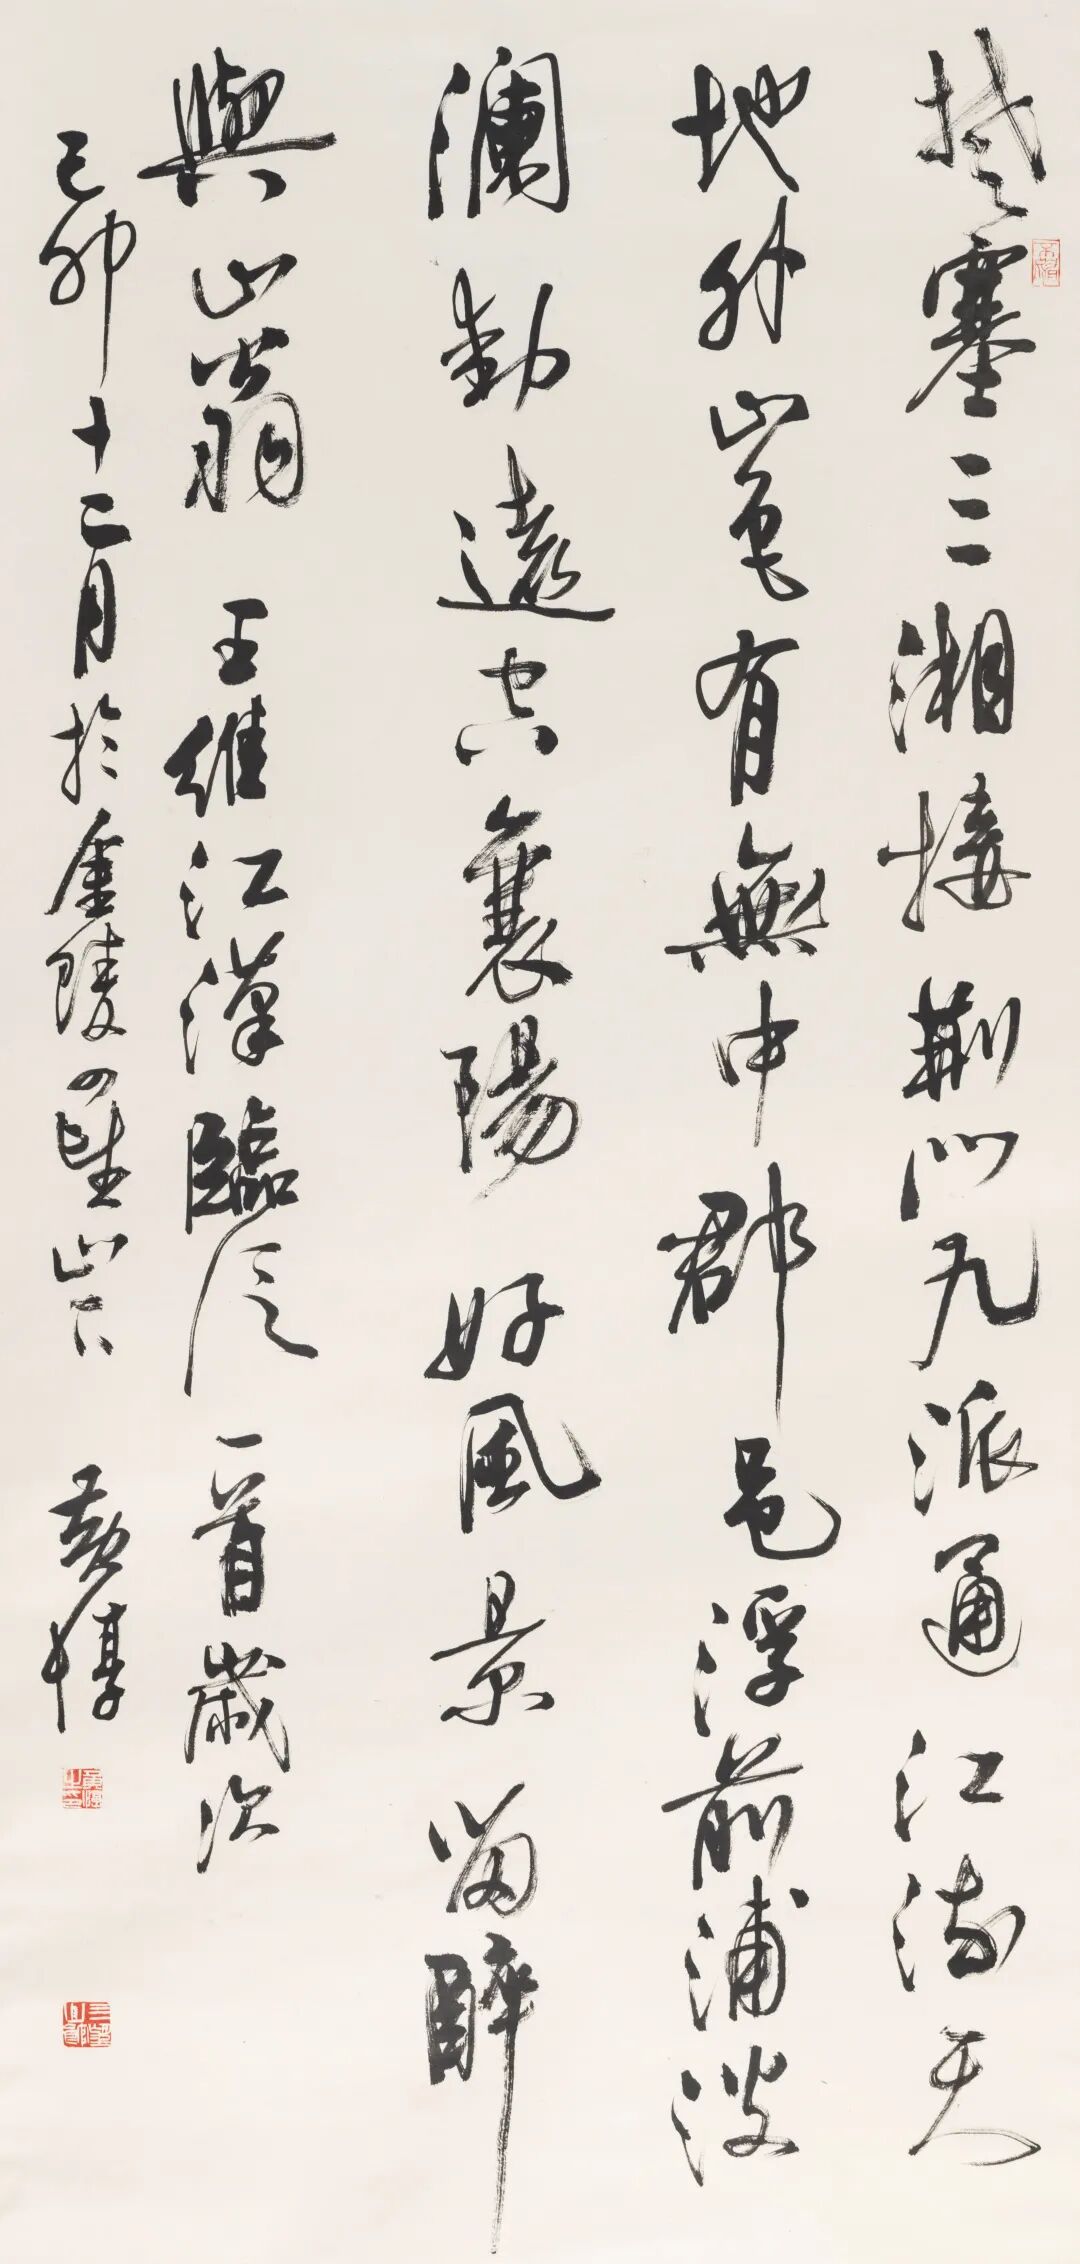 楚塞三湘接荆門九派通江流天
地外山色有無中郡邑浮前浦波
瀾動遠空襄陽好風景留醉
與山翁 王維江漢臨泛一首歲次
己卯十二月於金陵四望山下 黄惇
黄惇之印